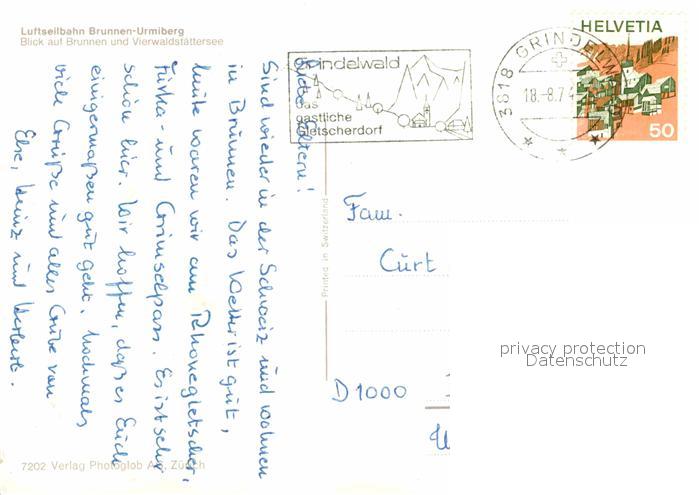 Luftseilbahn Brunnen-Urmiberg
Blick auf Brunnen und Vierwaldstättersee
Liebe Eltern!
Sind wieder in der Schweiz und wohnen
in Brunnen. Das Wetter ist gut,
heute waren wir am Rhonegletscher,
Furka- und Grimselpass. Es ist sehr
schön hier. Wir hoffen, daß es Euch
einigermaßen gut geht. Nochmals
viele Grüße und alles Gute von
Else, Heinz und
7202 Verlag Photoglob AG, Zürich
Printed in Switzerland
Grindelwald
das
gastliche
Gletscherdorf
3818 GRINDELW
18.-8.74
HELVETIA
50
Fam.
Curt
D 1000
privacy protection
Datenschutz